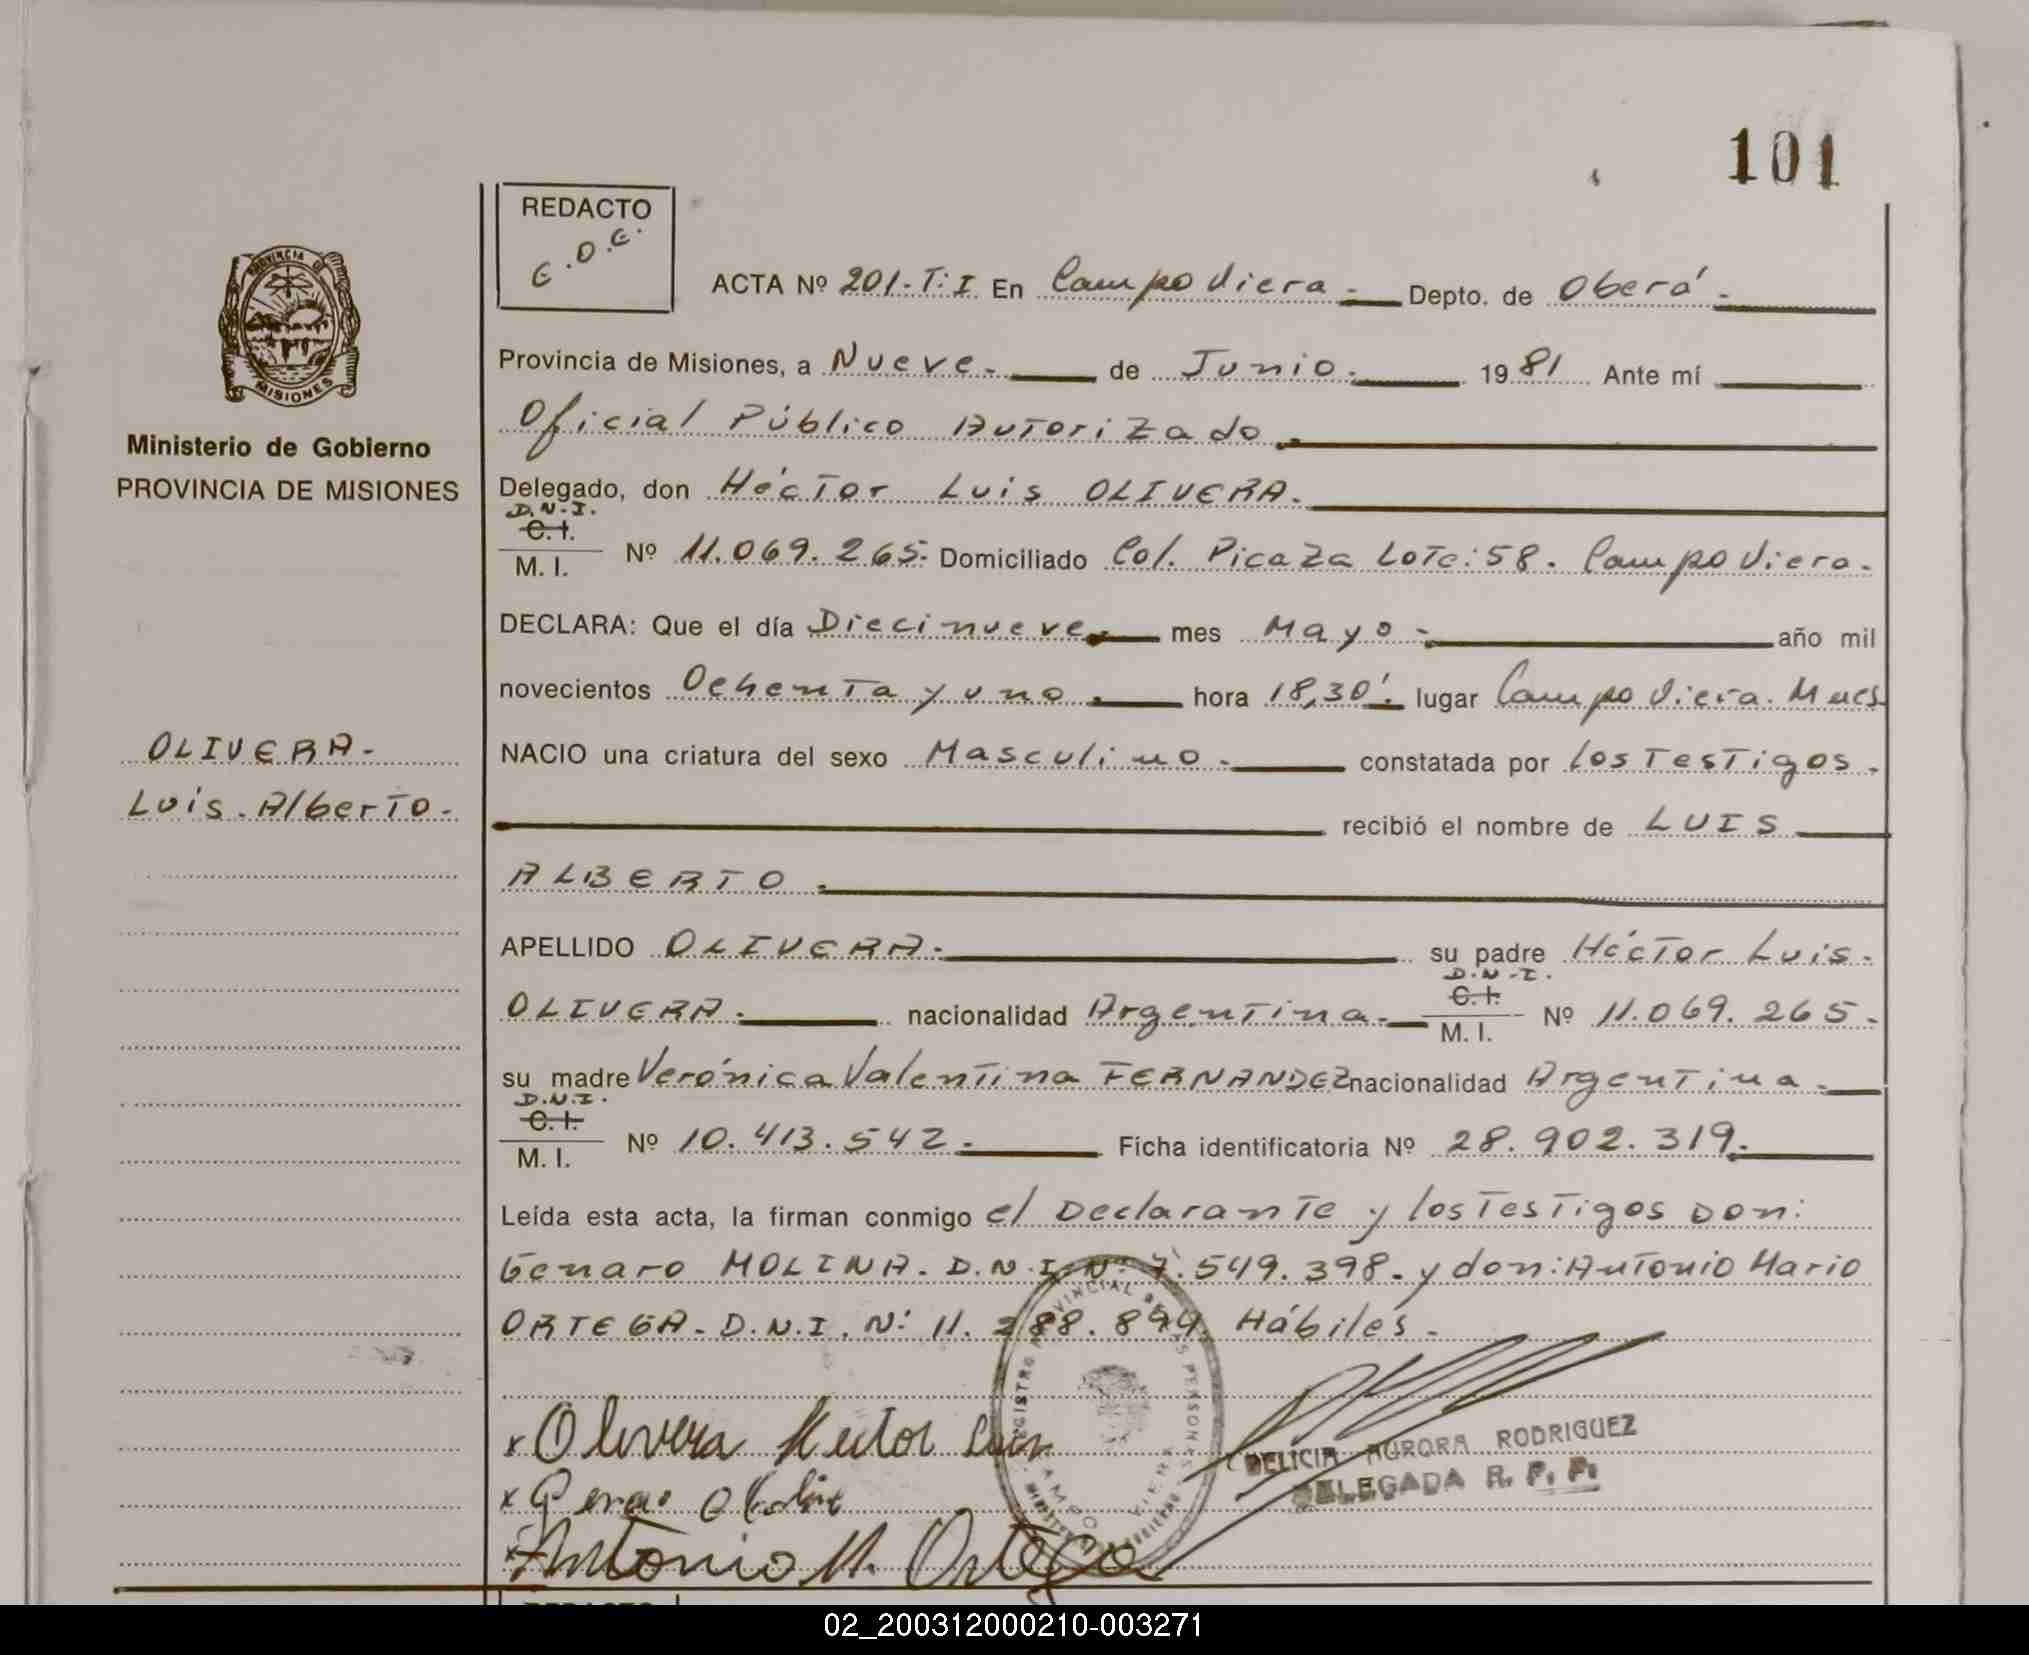 101
REDACTO
E.D.E.
ACTA Nº 201.-T:I En Campo Viera.- Depto. de Oberá.-
Provincia de Misiones, a Nueve.- de Junio.- 1981 Ante mí
Oficial Público Autorizado.
Ministerio de Gobierno
PROVINCIA DE MISIONES
Delegado, don Héctor Luis OLIVERA.
D.N.I.
C.I.
M. I. Nº 11.069.265.- Domiciliado Col. Picaza Lote:58. Campo Viera.-
DECLARA: Que el día Diecinueve.- mes Mayo.- año mil
novecientos Ochenta y uno.- hora 18,30'.- lugar Campo Viera. Mnes
NACIO una criatura del sexo Masculino.- constatada por los Testigos.-
recibió el nombre de LUIS
ALBERTO.
OLIVERA.-
Luis.Alberto.-
APELLIDO OLIVERA.- su padre Héctor Luis.-
OLIVERA.- nacionalidad Argentina.- D.N.I.
C.I.
M. I. Nº 11.069.265.-
su madre Verónica Valentina FERNANDEZ nacionalidad Argentina.-
D.N.I.
C.I.
M. I. Nº 10.413.542.- Ficha identificatoria Nº 28.902.319.-
Leída esta acta, la firman conmigo el Declarante y los Testigos Don:
Genaro MOLINA. D.N.I. Nº 7.549.398.- y don: Antonio Mario
ORTEGA.- D.N.I. Nº 11.288.894 Hábiles.-
x Olivera Hector Luis
x
x Antonio M. Ortega
REGISTRO PROVINCIAL DE LAS PERSONAS
CAMPO VIERA
DELICIA AURORA RODRIGUEZ
DELEGADA R. P. P.
02_200312000210-003271